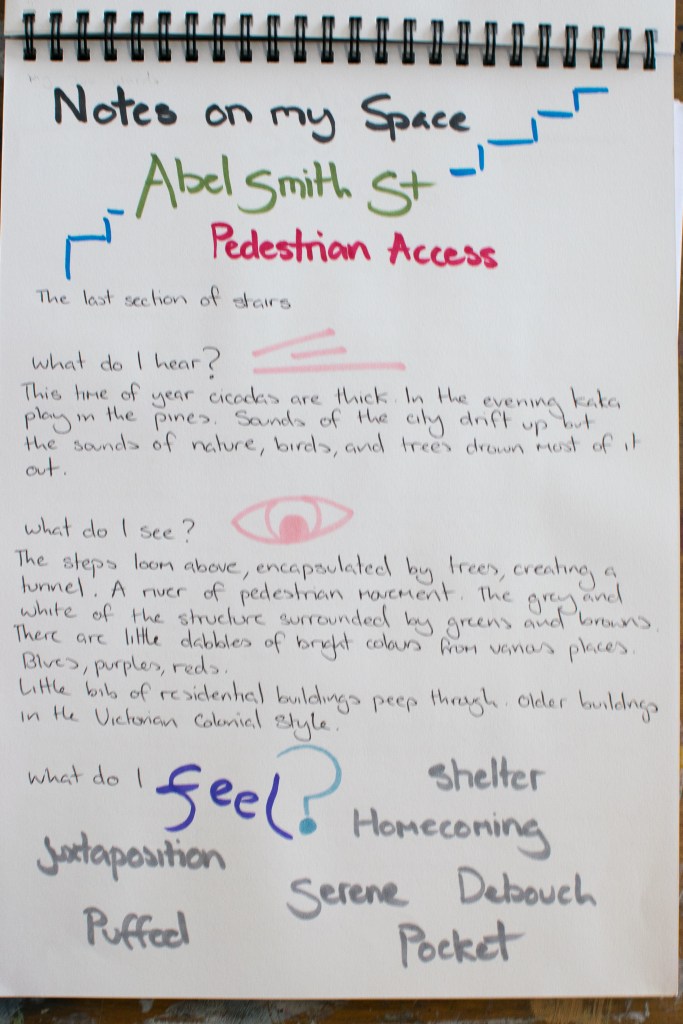 Notes on my Space
Abel Smith St
Pedestrian Access
The last section of stairs
what do I hear?
This time of year cicadas are thick. In the evening kaka
play in the pines. Sounds of the city drift up but
the sounds of nature, birds, and trees drown most of it
out.
what do I see?
The steps loom above, encapsulated by trees, creating a
tunnel. A river of pedestrian movement. The grey and
white of the structure surrounded by greens and browns.
There are little dabbles of bright colours from various places.
Blues, purples, reds.
Little bits of residential buildings peep through. Older buildings
in the Victorian Colonial Style.
what do I feel?
Shelter
Homecoming
Juxtaposition
Serene Debouch
Puffed
Pocket